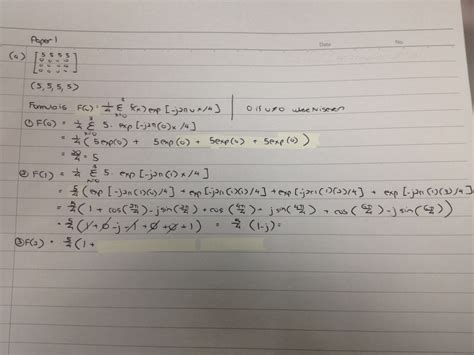 Paper 1
Date No.
(a) [5 5 5 5
0 0 0 0
0 0 0 0
0 0 0 0]
(5, 5, 5, 5)
Formula is F(u) = 1/4 Σ f(x) exp[-j2πux/4] |
① F(0) = 1/4 Σ 5. exp[-j2π(0)x/4]
= 1/4 (5exp(0) + 5exp(0) + 5exp(0) + 5exp(0))
= 20/4 = 5
② F(1) = 1/4 Σ 5. exp[-j2π x/4]
= 5/4 (exp[-j2π(1)(0)/4] + exp[-j2π(1)(1)/4] + exp[-j2π(1)(2)/4] + exp[-j2π(1)(3)/4]
= 5/4 (1 + cos(2π/4) - jsin(2π/4) + cos(4π/4) - jsin(4π/4) + cos(6π/4) - jsin(6π/4))
= 5/4 (1 + 0 - j - 1 + 0 + 0 + 1) = 5/4 (1-j) =
③ F(2) = 5/4 (1 +